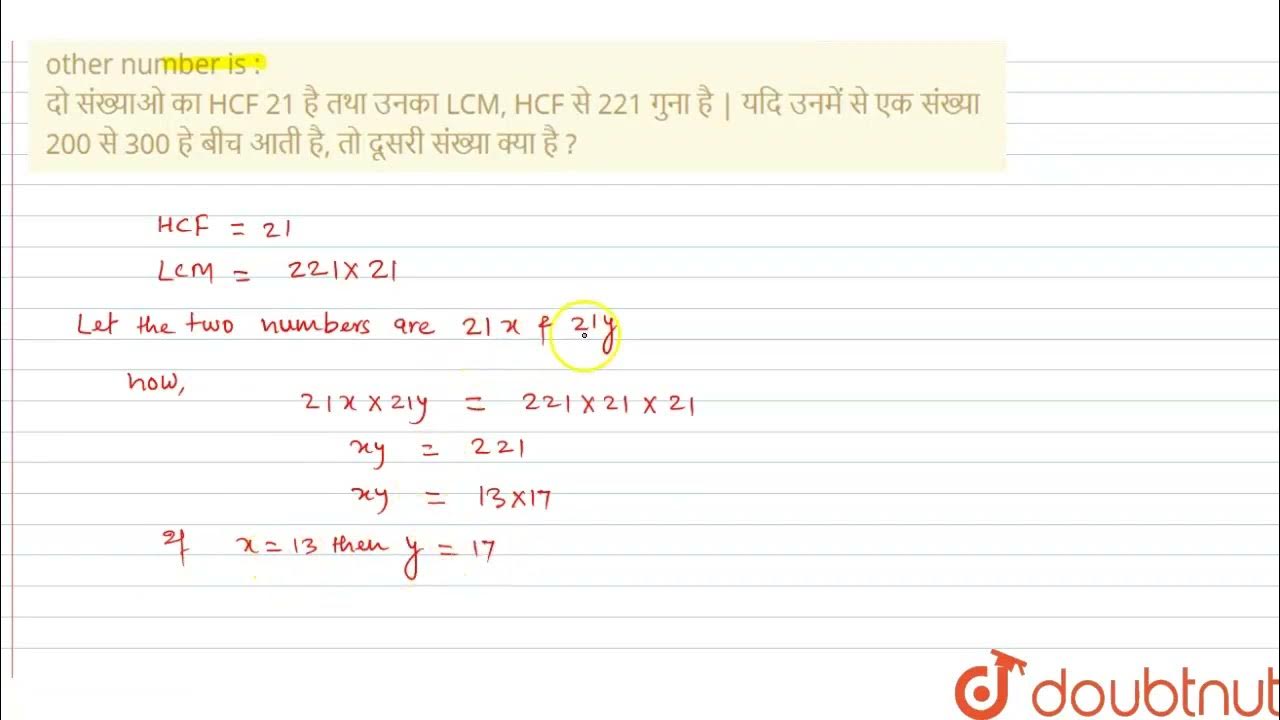 other number is :
दो संख्याओ का HCF 21 है तथा उनका LCM, HCF से 221 गुना है | यदि उनमें से एक संख्या
200 से 300 हे बीच आती है, तो दूसरी संख्या क्या है ?
HCF = 21
LCM = 221 x 21
Let the two numbers are 21x & 21y
now,
21x x 21y = 221 x 21 x 21
xy = 221
xy = 13 x 17
If x = 13 then y = 17
doubtnut